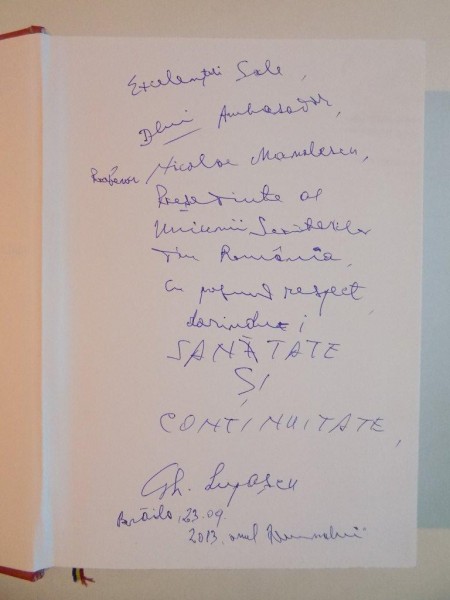 Excelenței Sale,
Dlui Ambasador,
Profesor Nicolae Manolescu,
Președinte al
Uniunii Scriitorilor
din România,
cu profund respect
dorindu-i
SANĂTATE
ȘI
CONTINUITATE,
Gh. Lupașcu
Brăila, 23.09.
2013, anul